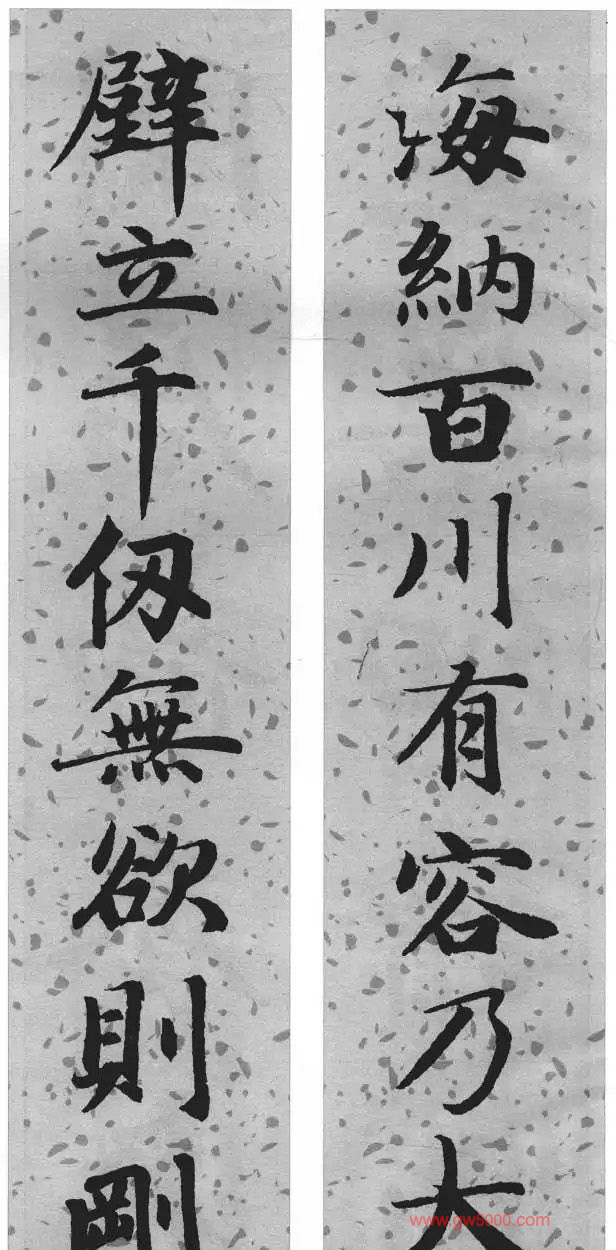 海納百川有容乃大
壁立千仞無欲則剛
www.gw5000.com